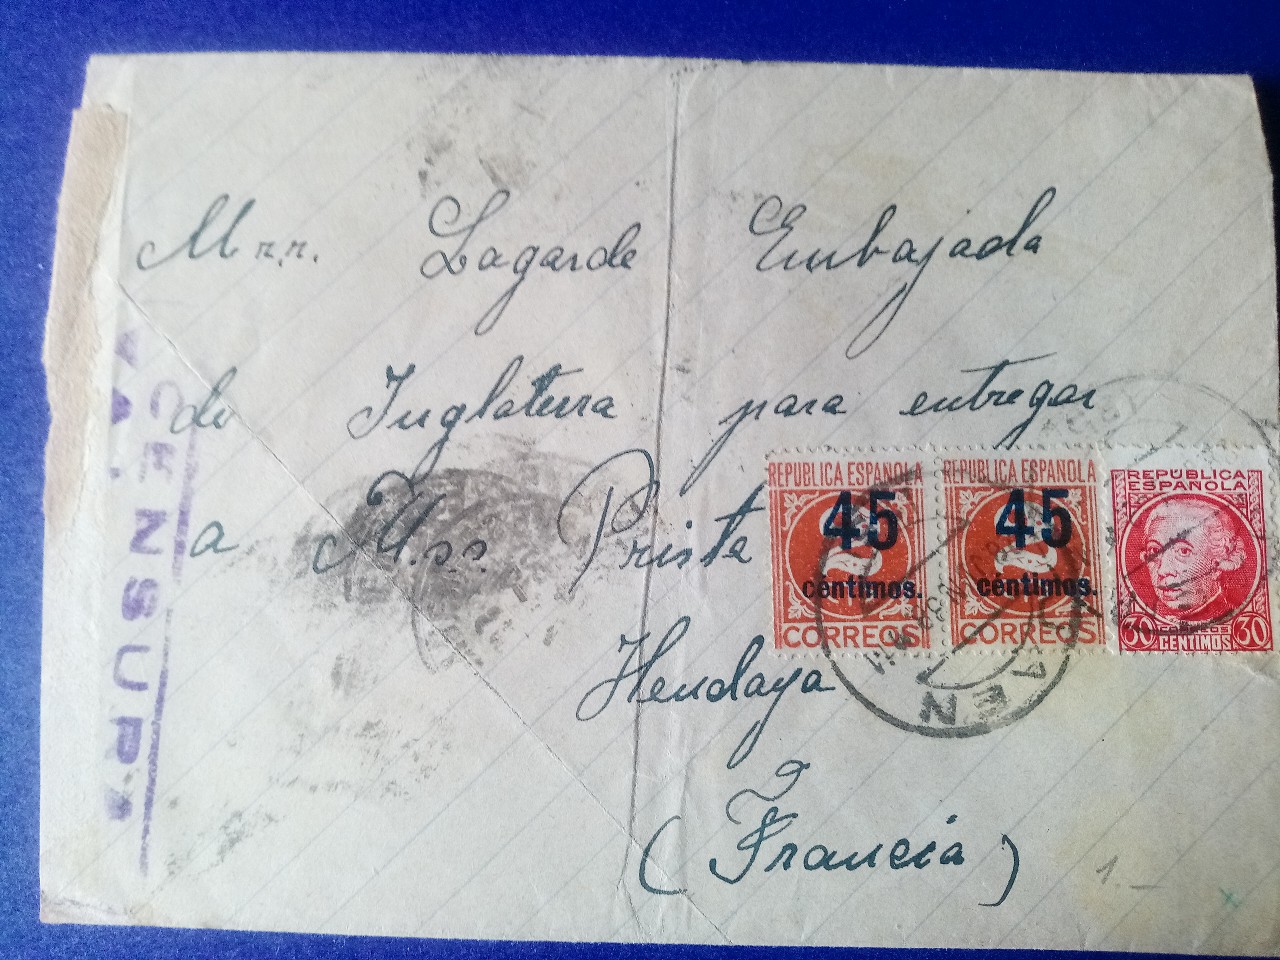 Mrr. Lagarde Embajada
de Inglaterra para entregar
a Mss. Prista
Hendaya
(Francia)
REPUBLICA ESPAÑOLA
45
céntimos.
CORREOS
REPUBLICA ESPAÑOLA
45
céntimos.
CORREOS
REPÚBLICA
ESPAÑOLA
30 CORREOS 30
CENTIMOS
CENSURA
JAEN
1.-